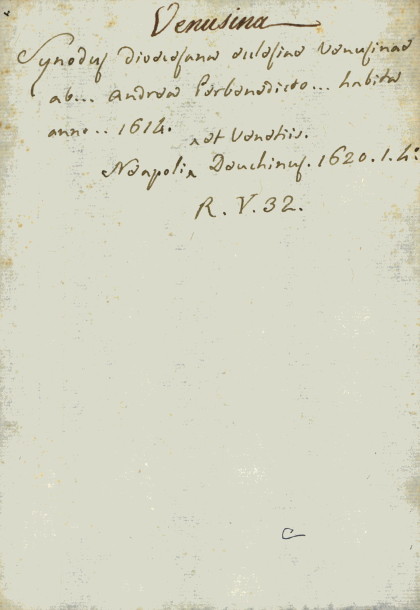 Venusina
Synodus dioecesana ecclesiae Venusinae
ab... Andrea Perbenedicto... habita
anno.. 1614.
^et Venetiis.
Neapoli^ Deuchinus. 1620. 1. 4:
R. V. 32.
C